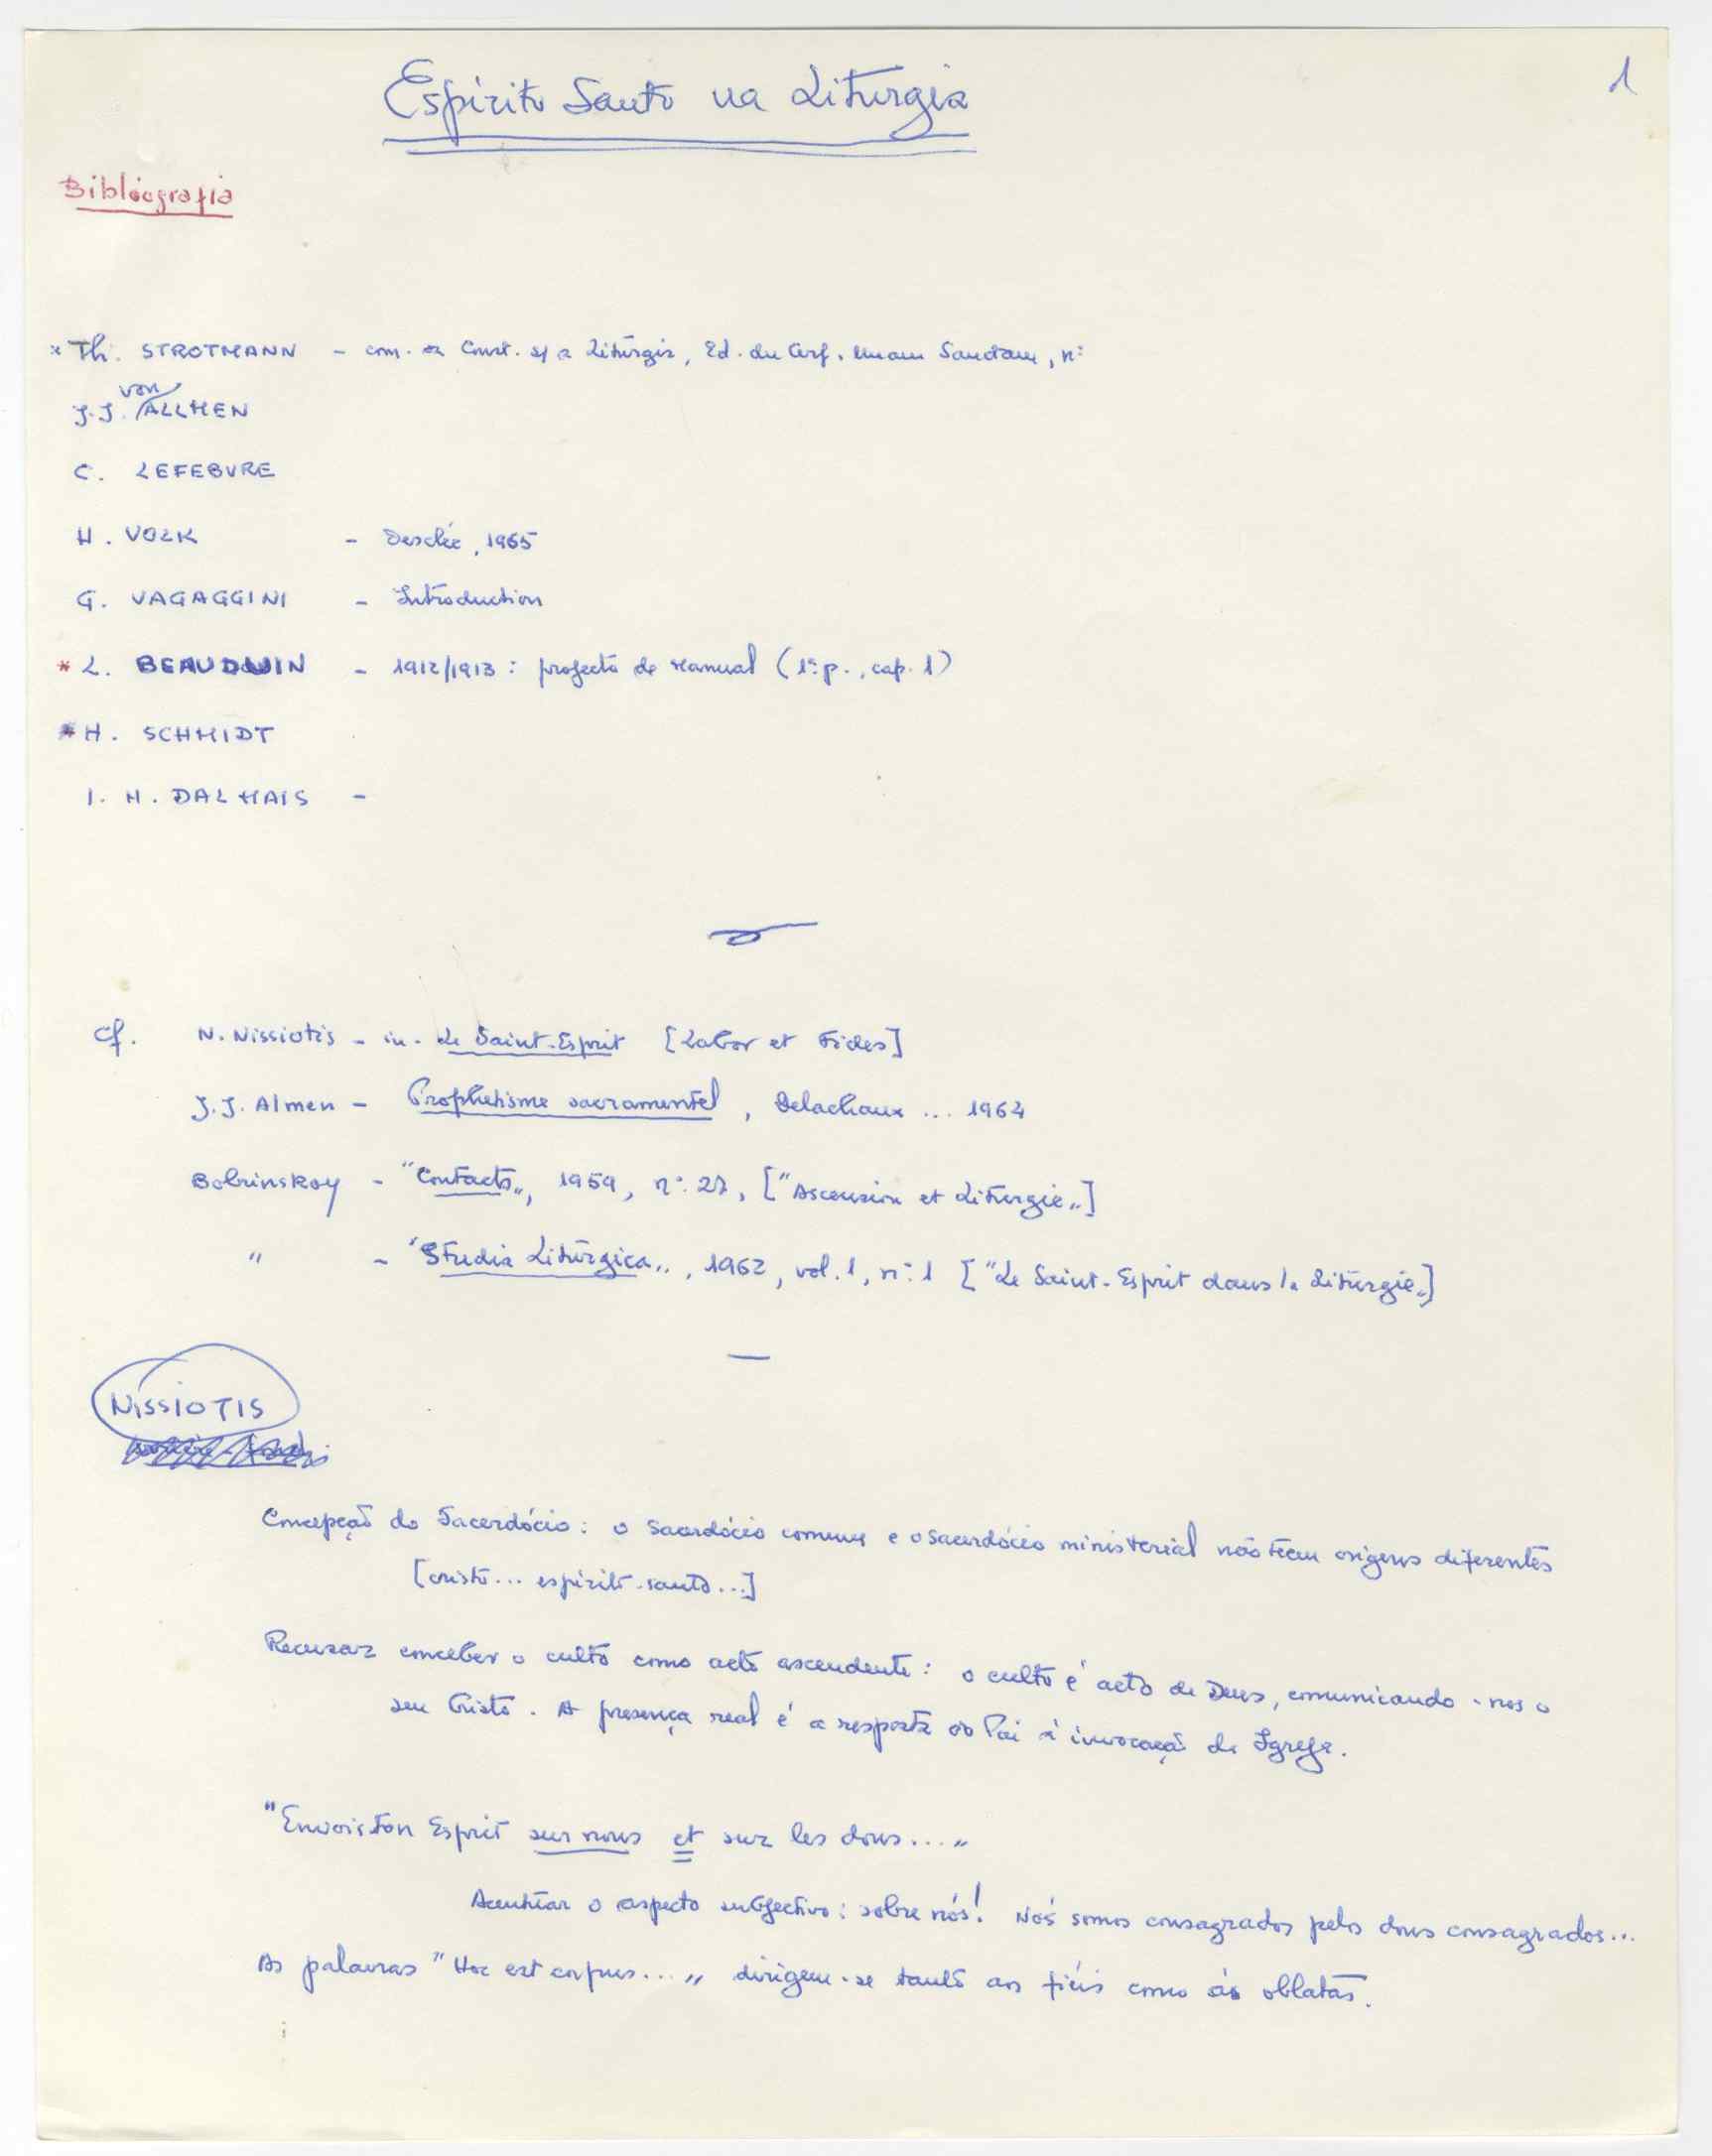 Espírito Santo na Liturgia
1
Bibliografia
* Th. STROTMANN - com. à Const. s/ a Liturgia, Ed. du Cerf, Unam Sanctam, nº
J.J. von ALLMEN
C. LEFEBVRE
H. VOLK - Desclée, 1965
G. VAGAGGINI - Introduction
* L. BEAUDUIN - 1912/1913 : projecto de Manual (1ª p., cap. 1)
* H. SCHMIDT
I. H. DALMAIS -
Cf. N. Nissiotis - in - Le Saint-Esprit [Labor et Fides]
J.J. Almen - Prophétisme sacramentel, Delachaux ... 1964
Bobrinskoy - "Contacts", 1959, nº. 27, ["Ascension et Liturgie"]
" - "Studia Litúrgica", 1962, vol. 1, nº 1 ["Le Saint-Esprit dans la Liturgie"]
NISSIOTIS
Concepção do Sacerdócio : o sacerdócio comum e o sacerdócio ministerial não têem origens diferentes
[cristo... espírito-santo...]
Recusar conceber o culto como acto ascendente : o culto é acto de Deus, comunicando-nos o
seu Cristo. A presença real é a resposta do Pai à invocação da Igreja.
"Envois ton Esprit sur nous et sur les dons..."
Acentuar o aspecto subjectivo : sobre nós! Nós somos consagrados pelos dons consagrados...
As palavras "Hoc est corpus..." dirigem-se tanto aos fiéis como às oblatas.